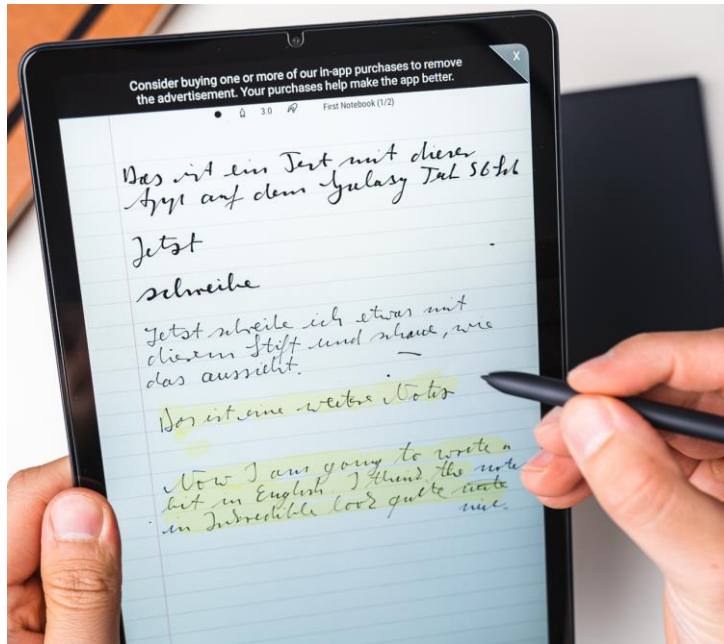 Consider buying one or more of our in-app purchases to remove
the advertisement. Your purchases help make the app better.
X
3.0 First Notebook (1/2)
Das ist ein Test mit dieser
App auf dem Galaxy Tab S6
Jetzt
schreibe
Jetzt schreibe ich etwas mit
diesem Stift und schaue, wie
das aussieht.
Das ist eine weitere Notiz
Now I am going to write a
bit in English. I think the note
in Inkredible look quite
nice.